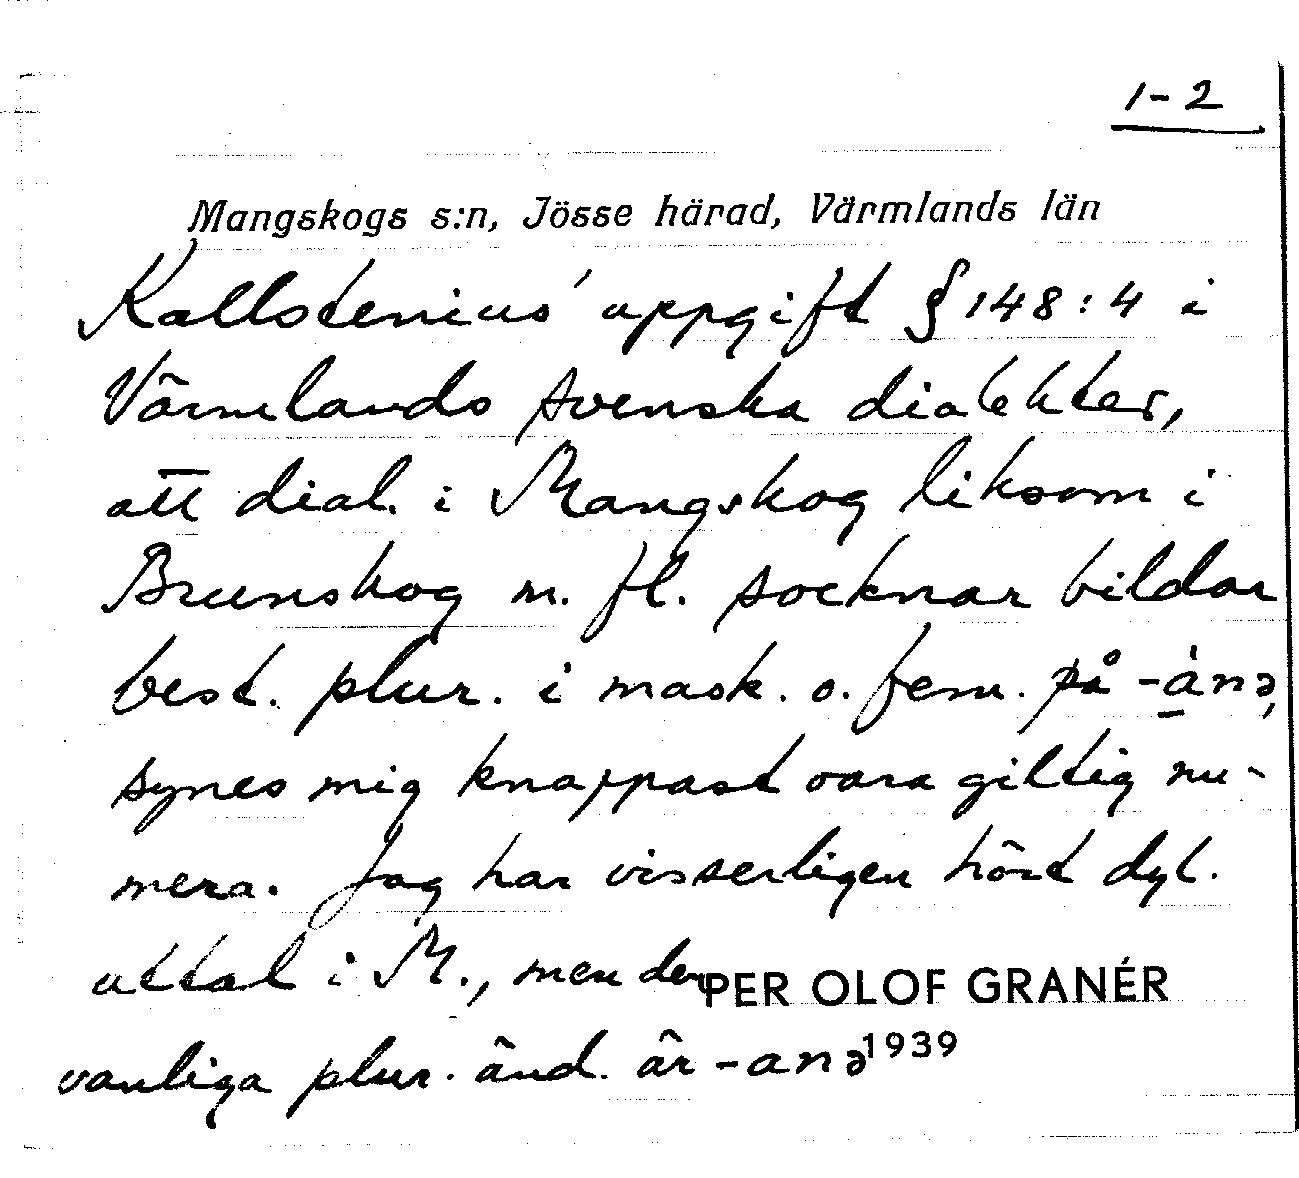 1-2
Mangskogs s:n, Jösse härad, Värmlands län
Kallstenius' uppgift § 148:4 i
Värmlands svenska dialekter,
att dial. i Mangskog liksom i
Brunskog m. fl. socknar bildar
best. plur. i mask. o. fem. på -à̱nə,
synes mig knappast vara giltig nu-
mera. Jag har visserligen hört dyl.
uttal i M., men den
PER OLOF GRANÉR
vanliga plur. änd. är -anə
1939